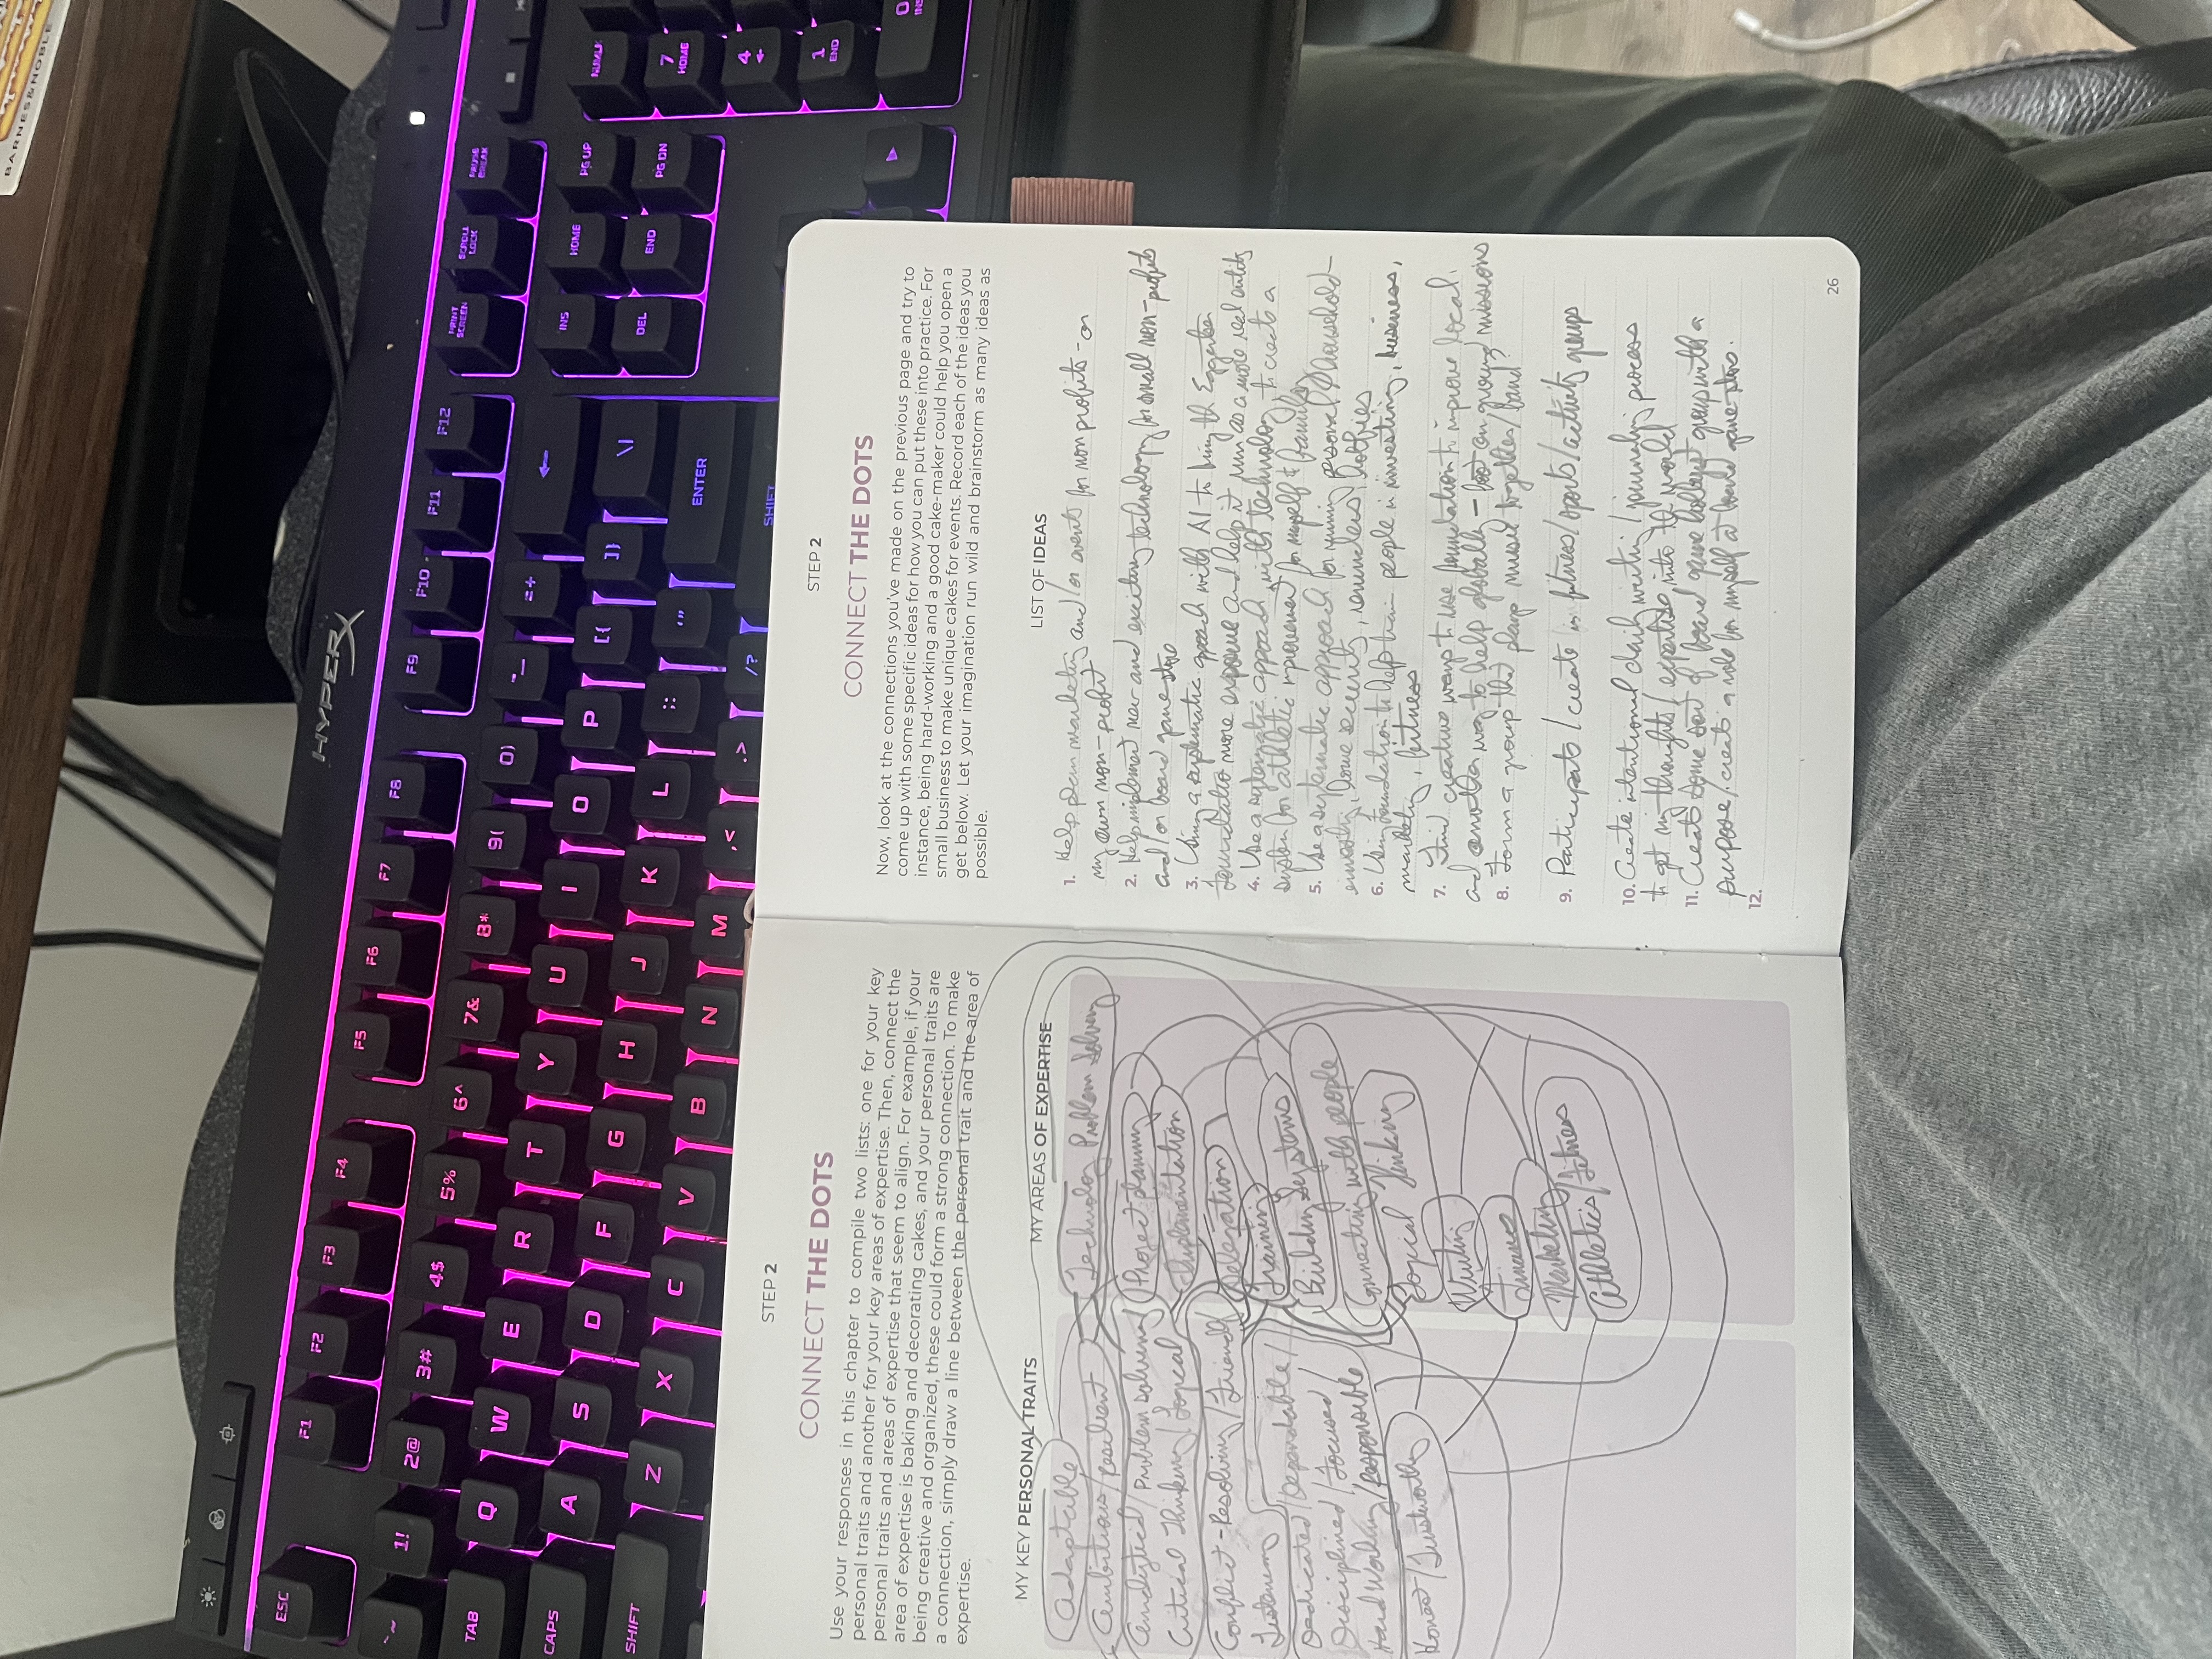 STEP 2
CONNECT THE DOTS
Use your responses in this chapter to compile two lists: one for your key
personal traits and another for your key areas of expertise. Then, connect the
personal traits and areas of expertise that seem to align. For example, if your
area of expertise is baking and decorating cakes, and your personal traits are
being creative and organized, these could form a strong connection. To make
a connection, simply draw a line between the personal trait and the area of
expertise.
MY KEY PERSONAL TRAITS
Adaptable
Ambitious / resilient
Analytical / problem solving
Critical Thinking / Logical
Conflict-Resolving / Friendly
Listening
Dedicated / Dependable /
Disciplined / Focused /
Hard Working / Responsible
Honest / Trustworthy
MY AREAS OF EXPERTISE
Technology Problem Solving
Project Planning
Implementation
Delegation
Training
Building Systems
Connecting with people
Logical Thinking
Writing
Finances
Marketing
Athletics / Fitness
STEP 2
CONNECT THE DOTS
Now, look at the connections you've made on the previous page and try to
come up with some specific ideas for how you can put these into practice. For
instance, being hard-working and a good cake-maker could help you open a
small business to make unique cakes for events. Record each of the ideas you
get below. Let your imagination run wild and brainstorm as many ideas as
possible.
LIST OF IDEAS
1. Help plan marketing and/or events for non profits - or
my own non-profit
2. Help implement new and exciting technology for small non-profits
and/or board game
3. Using a systematic approach with AI to bring the
Foundation more exposure and help it run as a more real entity
4. Use a systematic approach with technology to create a
system for athletic improvement for myself & family
5. Use a systematic approach for running personal / household
home security, hobbies
6. Using foundation to help train people in investing, business,
marketing, fitness
7. Find creative ways to use foundation to improve local
and another way to help globally - on ground missions
8. Form a group that plays music together / band?
9. Participate / create in fitness / sports / activity groups
10. Create intentional daily writing / journaling process
to get my thoughts / expertise into the world
11. Create some sort of board game hobbyist group with a
purpose / create a role for myself at board game
12.
26
HYPERX
ESC
F1
F2
F3
F4
F5
F6
F7
F8
F9
F10
F11
F12
PRINT SCREEN
SCROLL LOCK
PAUSE BREAK
`~
1!
2@
3#
4$
5%
6^
7&
8*
9(
0)
-_
=+
←
INS
HOME
PG UP
NUMLK
TAB
Q
W
E
R
T
Y
U
I
O
P
[{
]}
\|
DEL
END
PG DN
7 HOME
CAPS
A
S
D
F
G
H
J
K
L
;:
'"
ENTER
4 ←
SHIFT
Z
X
C
V
B
N
M
,<
.>
/?
SHIFT
1 END
0 INS
BARNES & NOBLE